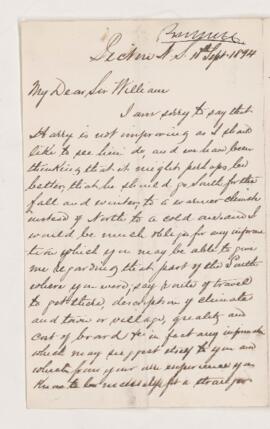 Pictou N. S. 18th Sept. 1894
My Dear Sir William
I am sorry to say that
Harry is not improving as I should
like to see him do, and we have been
thinking that it might perhaps be
better, that he should go South for the
fall and winter, to a warmer climate
instead of North to a cold one and I
would be much obliged for any informa
tion which you may be able to give
me regarding that part of the South
where you were, say route of travel
to get there, description of climate
and town or village, quality and
cost of board &c in fact any information
which may suggest itself to you and
which from your own experience you
know to be necessary for a stranger